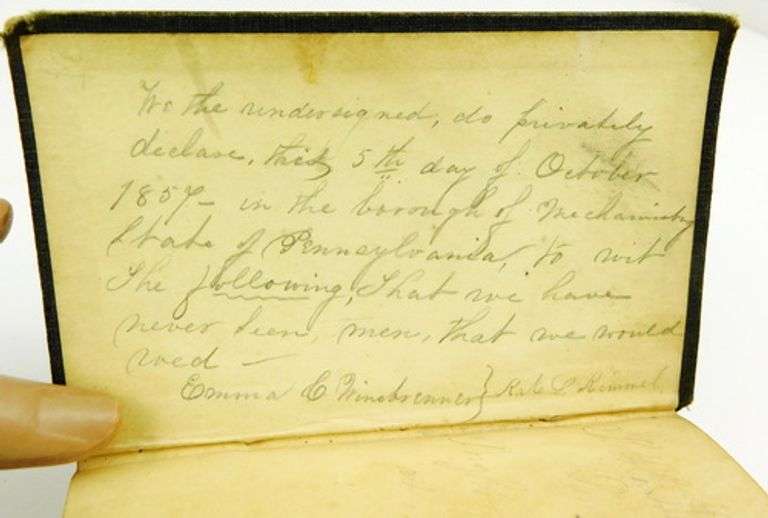 We the undersigned, do privately
declare, this 5th day of October
1857 – in the borough of Mechanicsbg
State of Pennsylvania, to wit
The following, That we have
never seen, men, that we would
wed —
Emma C Winebrenner } Kate P Kimmel